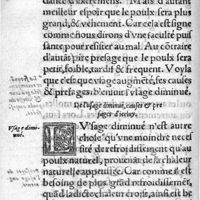 dance & extremes. Mais d'autant
meilleur espoir que le poulx sera plus
grand, & vehement. Car cela est signe
comme nous dirons d'vne faculté puis
sante pour resister au mal. Au côtraire
d'autãt pire presage que le poulx sera
petit, foible, tardif & frequent. Voyla
que c'est que vsage augmẽté, ses causes
& presages: venons à l'vsage diminué.
De l'vsage diminué, causes & pre
sages d'iceluy.
Vsage dimi-
nué.
L'Vsage diminué n'est autre
chose qu'vne moindre necessi-
té de refroidissement qu'au
poulx naturel, prouenãt de la chaleur
naturelle appetissee. Car comme il est
besoing de plus grãd refroidissemẽt,
quãd ladicte chaleur croist, ainsi est-il